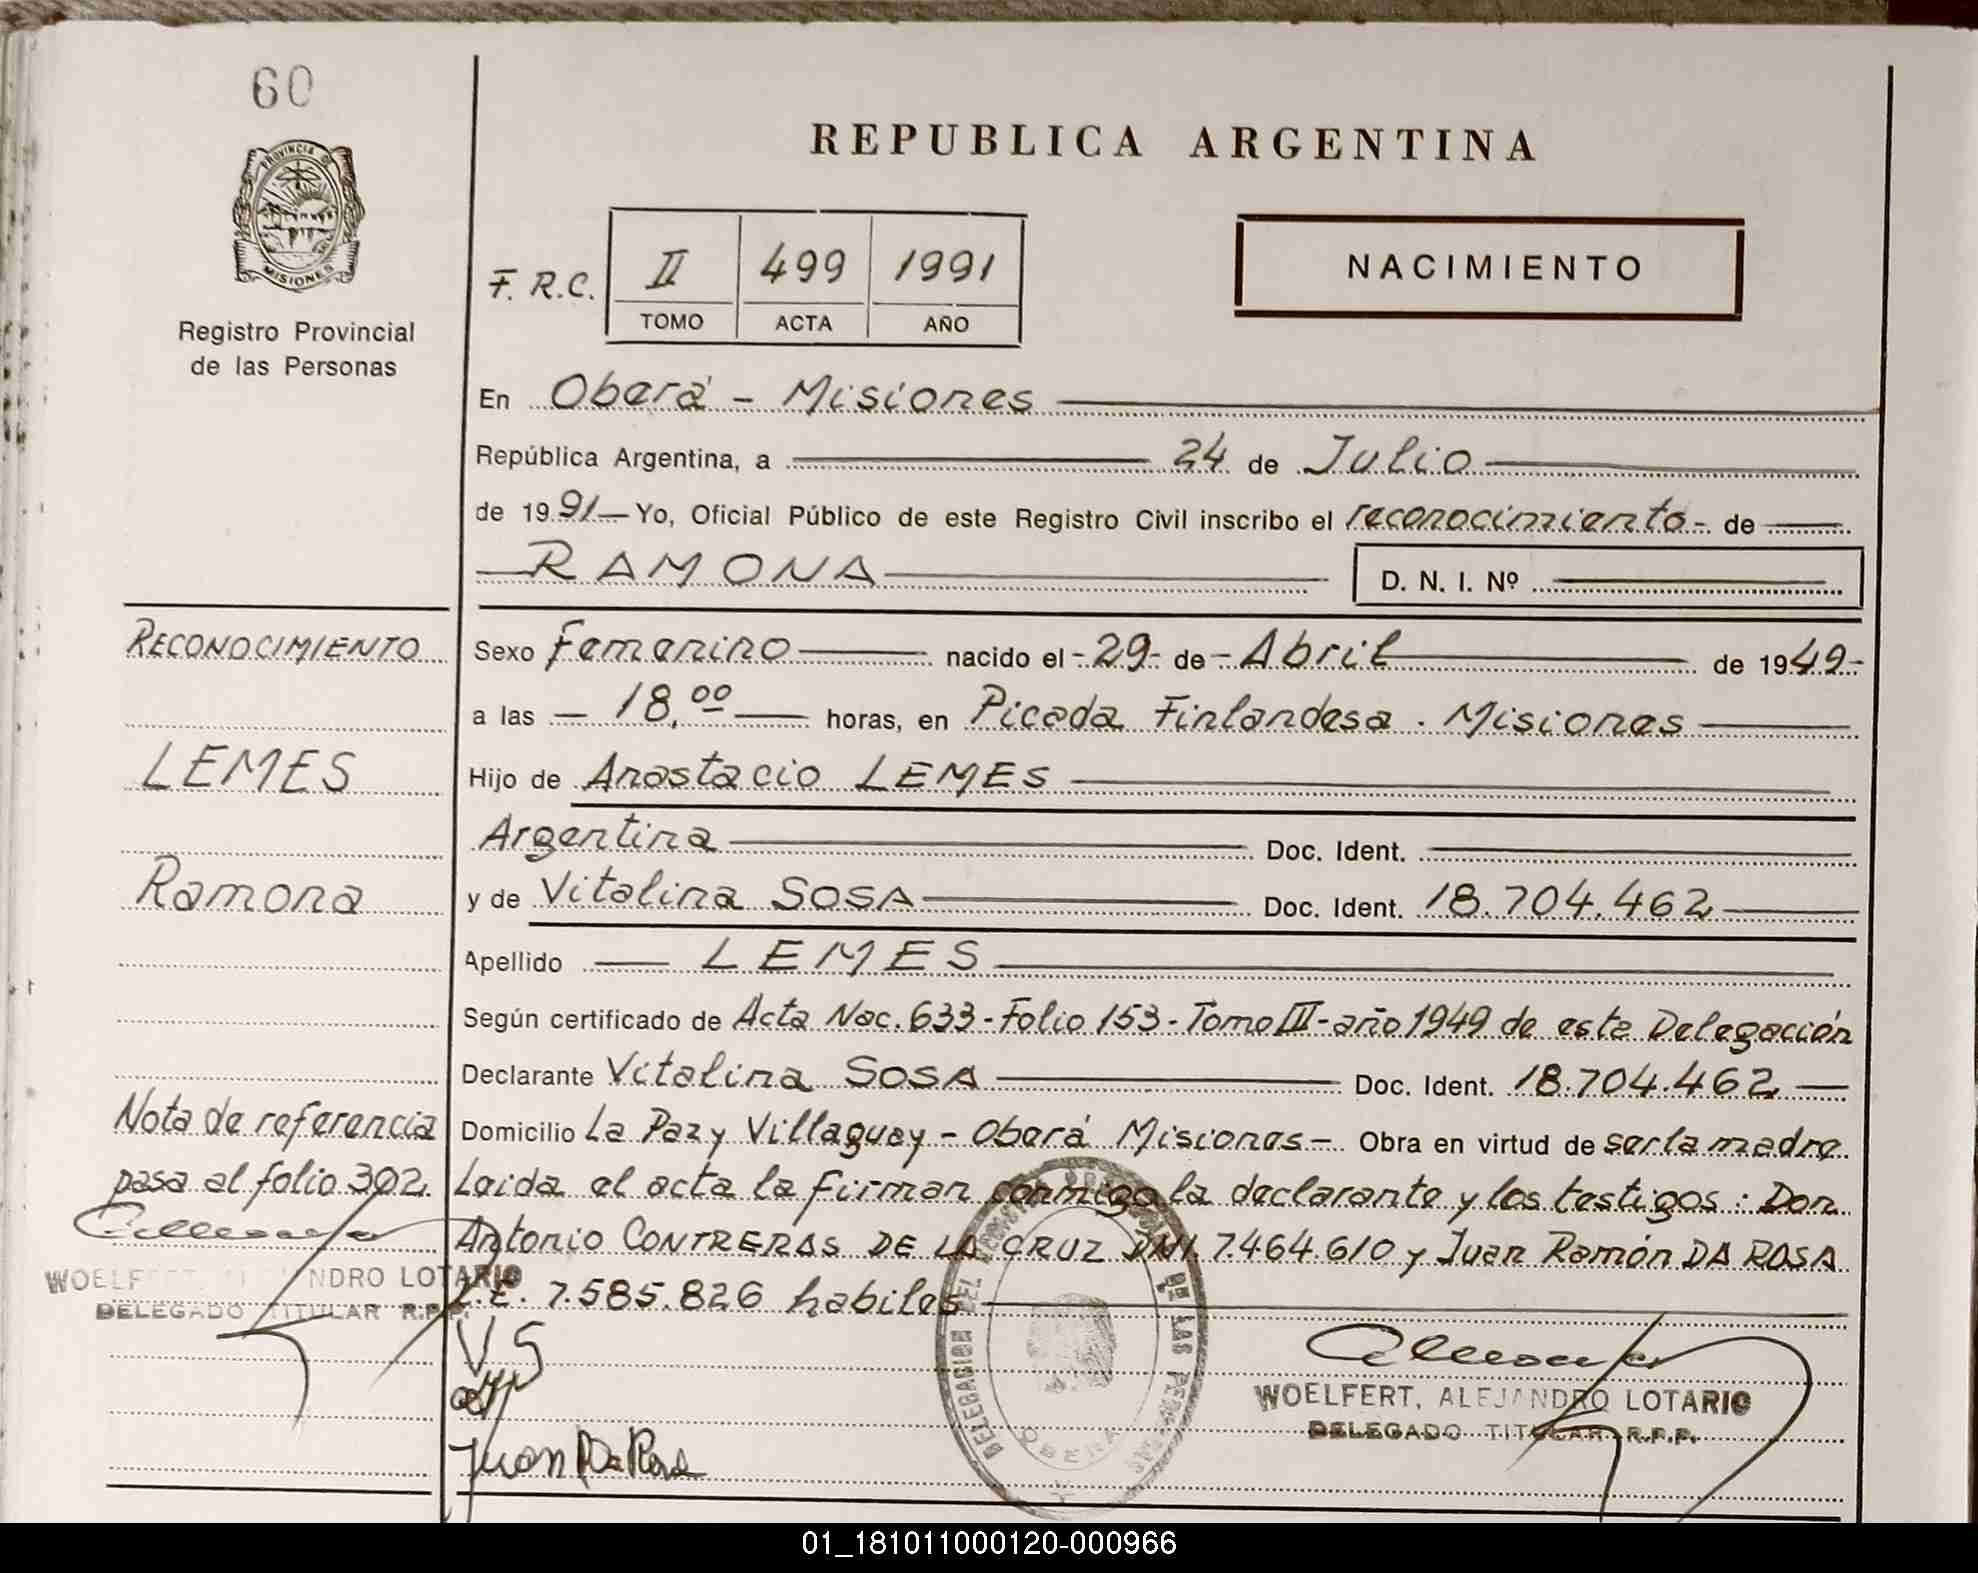 60
REPUBLICA ARGENTINA
PROVINCIA D
MISIONES
Registro Provincial
de las Personas
F. R.C. II 499 1991
TOMO ACTA AÑO
NACIMIENTO
En Oberá - Misiones
República Argentina, a 24 de Julio
de 1991 Yo, Oficial Público de este Registro Civil inscribo el reconocimiento - de
RAMONA D. N. I. Nº
RECONOCIMIENTO
Sexo Femenino nacido el - 29 - de - Abril de 1949 -
a las - 18,00 horas, en Picada Finlandesa . Misiones
LEMES
Hijo de Anastacio LEMES
Argentina Doc. Ident.
Ramona
y de Vitalina SOSA Doc. Ident. 18.704.462
Apellido LEMES
Según certificado de Acta Nac. 633 - Folio 153 - Tomo III - año 1949 de esta Delegación
Declarante Vitalina SOSA Doc. Ident. 18.704.462
Nota de referencia
pasa al folio 302.
Domicilio La Paz y Villaguay - Oberá Misiones - Obra en virtud de ser la madre.
Leida el acta la firman conmigo la declarante y los testigos : Don
Antonio CONTRERAS DE LA CRUZ DNI. 7.464.610 y Juan Ramón DA ROSA
L.E. 7.585.826 habiles
WOELFERT, ALEJANDRO LOTARIO
DELEGADO TITULAR R.P.P.
V S
Juan R Da Rosa
DELEGACION DEL REGISTRO PROVINCIAL DE LAS PERSONAS
OBERA
WOELFERT, ALEJANDRO LOTARIO
DELEGADO TITULAR R.P.P.
01_181011000120-000966